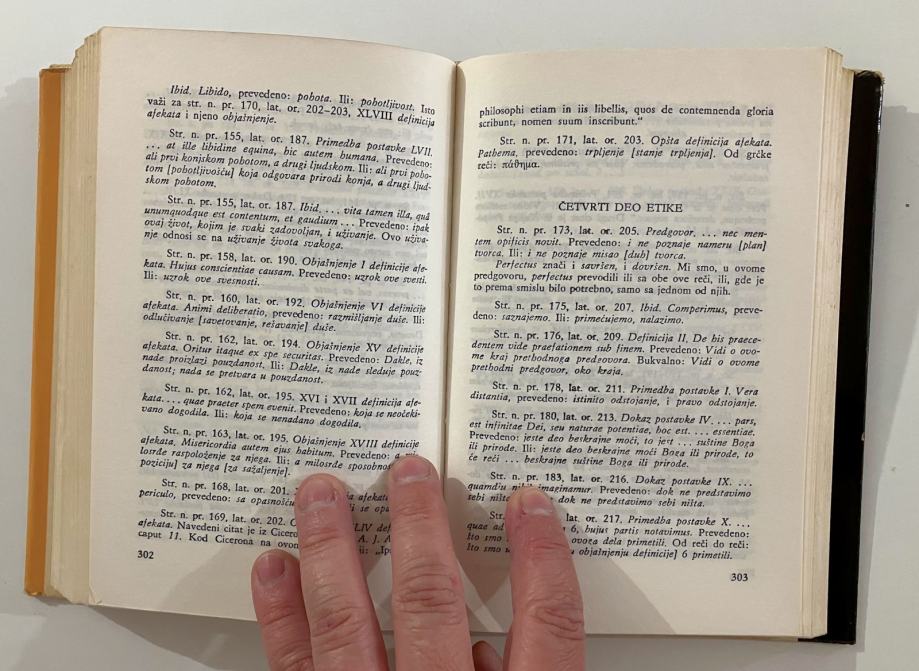 Ibid. Libido, prevedeno: pobota. Ili: pobotljivost. Isto
važi za str. n. pr. 170, lat. or. 202–203, XLVIII definicija
afekata i njeno objašnjenje.
Str. n. pr. 155, lat. or. 187. Primedba postavke LVII,
... at ille libidine equina, hic autem humana. Prevedeno:
ali prvi konjskom pobotom, a drugi ljudskom. Ili: ali prvi pobo-
tom [pobotljivošću] koja odgovara prirodi konja, a drugi ljud-
skom pobotom.
Str. n. pr. 155, lat. or. 187. Ibid, ... vita tamen illa, quâ
unumquodque est contentum, et gaudium ... Prevedeno: ipak
ovaj život, kojim je svaki zadovoljan, i uživanje. Ovo uživa-
nje odnosi se na uživanje života svakoga.
Str. n. pr. 158, lat. or. 190. Objašnjenje I definicije afe-
kata. Hujus conscientiae causam. Prevedeno: uzrok ove svesti.
Ili: uzrok ove svesnosti.
Str. n. pr. 160, lat. or. 192. Objašnjenje VI definicije
afekata. Animi deliberatio, prevedeno: razmišljanje duše. Ili:
odlučivanje [savetovanje, rešavanje] duše.
Str. n. pr. 162, lat. or. 194. Objašnjenje XV definicije
afekata. Oritur itaque ex spe securitas. Prevedeno: Dakle, iz
nade proizlazi pouzdanost. Ili: Dakle, iz nade sleduje pouz-
danost; nada se pretvara u pouzdanost.
Str. n. pr. 162, lat. or. 195. XVI i XVII definicija afe-
kata. ... quae praeter spem evenit. Prevedeno: koja se neočeki-
vano dogodila. Ili: koja se nenadano dogodila.
Str. n. pr. 163, lat. or. 195. Objašnjenje XVIII definicije
afekata. Misericordia autem ejus habitum. Prevedeno: a mi-
losrđe raspoloženje za njega. Ili: a milosrđe sposobnost
poziciju] za njega [za sažaljenje].
Str. n. pr. 168, lat. or. 201. afekata
periculo, prevedeno: sa opasnošću se
Str. n. pr. 169, lat. or. 202. XLIV
afekata. Navedeni citat je iz Cicero A. J. A
caput 11. Kod Cicerona na ovom
302
philosophi etiam in iis libellis, quos de contemnenda gloria
scribunt, nomen suum inscribunt.“
Str. n. pr. 171, lat. or. 203. Opšta definicija afekata.
Pathema, prevedeno: trpljenje [stanje trpljenja]. Od grčke
reči: πάθημα.
ČETVRTI DEO ETIKE
Str. n. pr. 173, lat. or. 205. Predgovor, ... nec men-
tem opificis novit. Prevedeno: i ne poznaje nameru [plan]
tvorca. Ili: i ne poznaje misao [duh] tvorca.
Perfectus znači i savršen, i dovršen. Mi smo, u ovome
predgovoru, perfectus prevodili ili sa obe ove reči, ili, gde je
to prema smislu bilo potrebno, samo sa jednom od njih.
Str. n. pr. 175, lat. or. 207. Ibid. Comperimus, preve-
deno: saznajemo. Ili: primećujemo, nalazimo.
Str. n. pr. 176, lat. or. 209. Definicija II, De his praece-
dentem vide praefationem sub finem. Prevedeno: Vidi o ovo-
me kraj prethodnoga predgovora. Bukvalno: Vidi o ovome
prethodni predgovor, oko kraja.
Str. n. pr. 178, lat. or. 211. Primedba postavke I, Vera
distantia, prevedeno: istinito odstojanje, i pravo odstojanje.
Str. n. pr. 180, lat. or. 213. Dokaz postavke IV. ... pars,
est infinitae Dei, seu naturae potentiae, hoc est. ... essentiae.
Prevedeno: jeste deo beskrajne moći, to jest ... suštine Boga
ili prirode. Ili: jeste deo beskrajne moći Boga ili prirode, to
će reći ... beskrajne suštine Boga ili prirode.
Str. n. pr. 183, lat. or. 216. Dokaz postavke IX. ...
quamdiu nihil imaginamur. Prevedeno: dok ne predstavimo
sebi ništa. dok ne predstavimo sebi ništa.
Str. lat. or. 217. Primedba postavke X. ...
quae ad 6, hujus partis notavimus. Prevedeno:
što smo ovoga dela primetili. Od reči do reči:
što smo u objašnjenju definicije] 6 primetili.
303